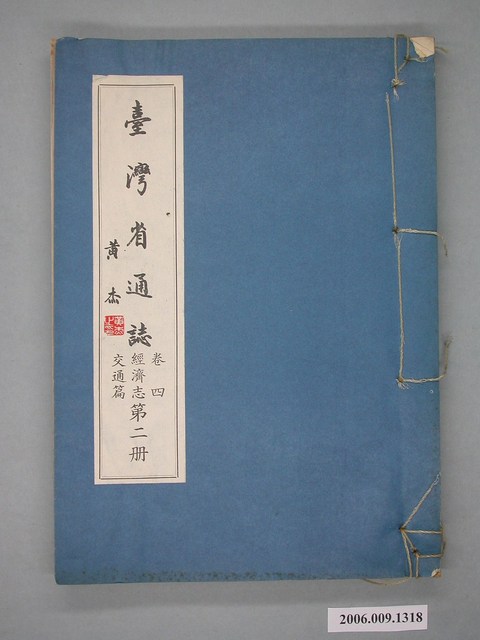 臺灣省通誌
卷四
經濟志第二册
交通篇
黃杰
2006.009.1318